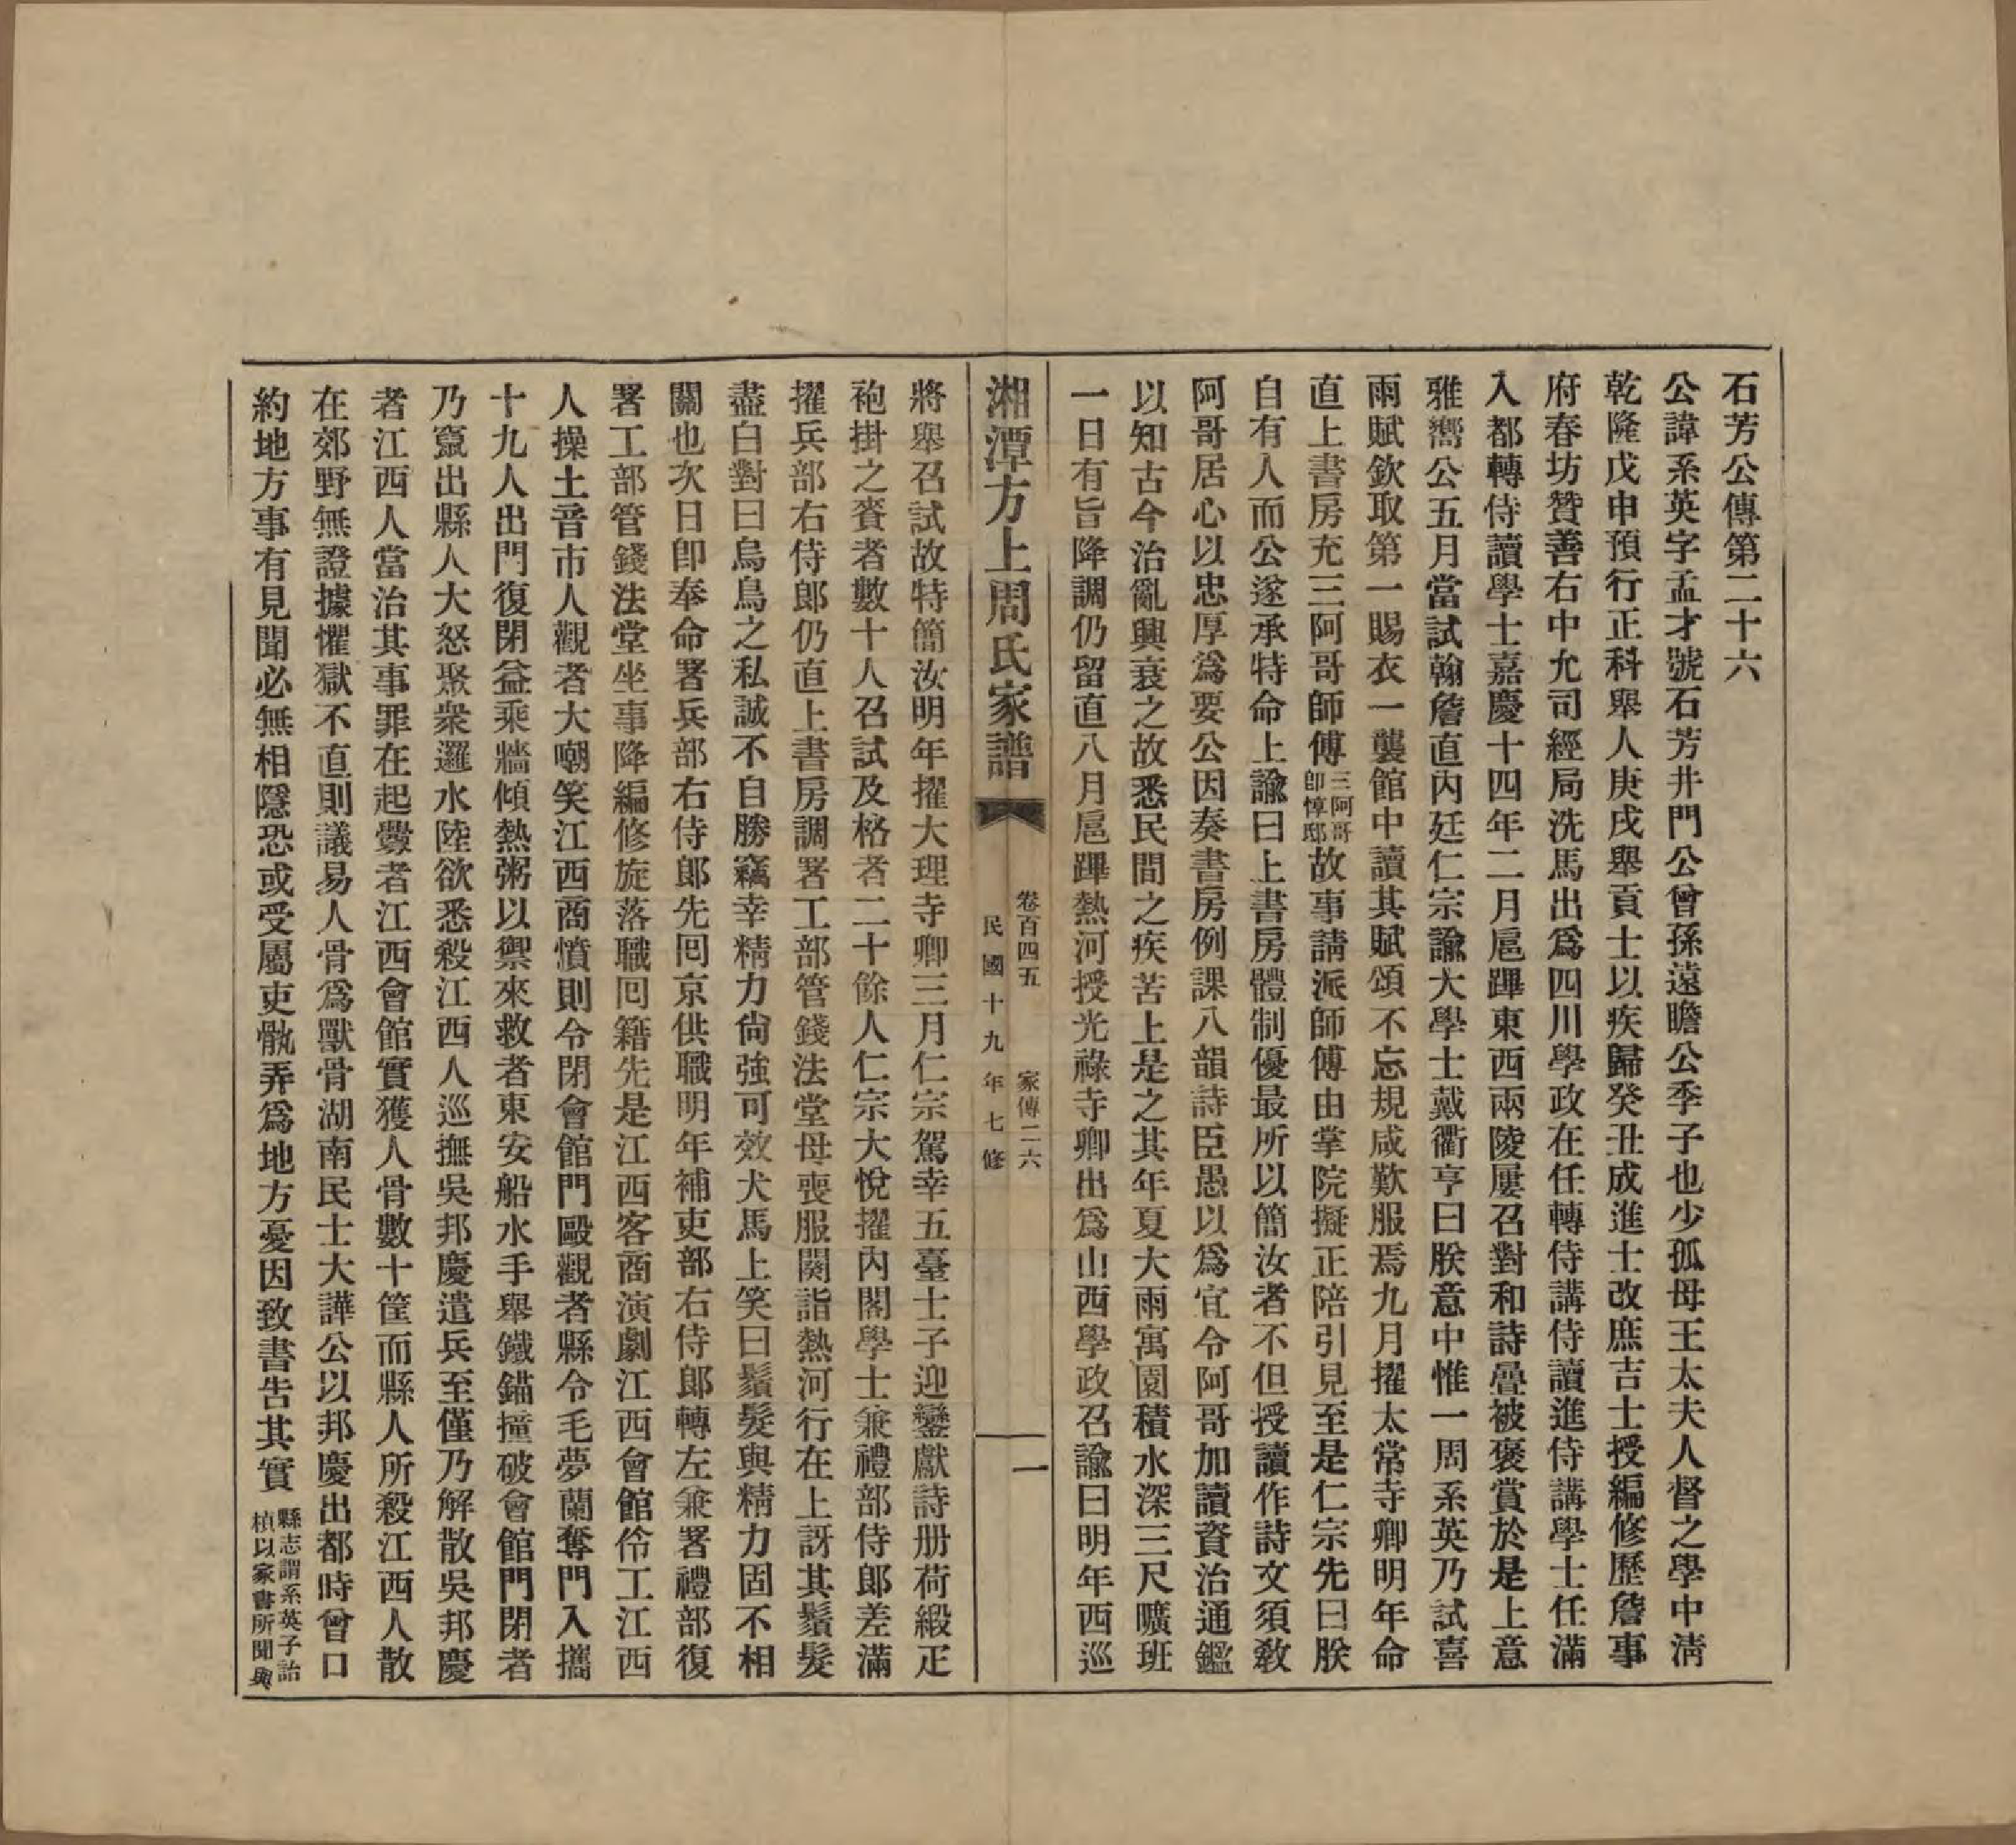 石芳公傳第二十六
公諱系英字孟才號石芳井門公曾孫遠瞻公季子也少孤母王太夫人督之學中淸
乾隆戊申預行正科舉人庚戌舉貢士以疾歸癸丑成進士改庶吉士授編修歷詹事
府春坊贊善右中允司經局洗馬出爲四川學政在任轉侍講侍讀進侍講學士任滿
入都轉侍讀學士嘉慶十四年二月扈蹕東西兩陵屢召對和詩疊被褒賞於是上意
雅嚮公五月當試翰詹直內廷仁宗諭大學士戴衢亨曰朕意中惟一周系英乃試喜
雨賦欽取第一賜衣一襲館中讀其賦頌不忘規咸歎服焉九月擢太常寺卿明年命
直上書房充三阿哥師傅三阿哥卽惇邸故事請派師傅由掌院擬正陪引見至是仁宗先曰朕
自有人而公遂承特命上諭曰上書房體制優最所以簡汝者不但授讀作詩文須敎
阿哥居心以忠厚爲要公因奏書房例課八韻詩臣愚以爲宜令阿哥加讀資治通鑑
以知古今治亂興衰之故悉民間之疾苦上是之其年夏大雨寓園積水深三尺曠班
一日有旨降調仍留直八月扈蹕熱河授光祿寺卿出爲山西學政召諭曰明年西巡
湘潭方上周氏家譜
卷百四五 家傳二六
民國十九年七修
一
將舉召試故特簡汝明年擢大理寺卿三月仁宗駕幸五臺士子迎鑾獻詩册荷緞疋
袍掛之賚者數十人召試及格者二十餘人仁宗大悅擢內閣學士兼禮部侍郎差滿
擢兵部右侍郎仍直上書房調署工部管錢法堂母喪服闋詣熱河行在上訝其鬚髮
盡白對曰烏鳥之私誠不自勝竊幸精力尙強可效犬馬上笑曰鬚髮與精力固不相
關也次日卽奉命署兵部右侍郎先囘京供職明年補吏部右侍郎轉左兼署禮部復
署工部管錢法堂坐事降編修旋落職囘籍先是江西客商演劇江西會館伶工江西
人操土音市人觀者大嘲笑江西商憤則令閉會館門毆觀者縣令毛夢蘭奪門入攜
十九人出門復閉益乘牆傾熱粥以禦來救者東安船水手舉鐵錨撞破會館門閉者
乃竄出縣人大怒聚衆邏水陸欲悉殺江西人巡撫吳邦慶遣兵至僅乃解散吳邦慶
者江西人當治其事罪在起釁者江西會館實獲人骨數十筐而縣人所殺江西人散
在郊野無證據懼獄不直則議易人骨爲獸骨湖南民士大譁公以邦慶出都時曾口
約地方事有見聞必無相隱恐或受屬吏骩弄爲地方憂因致書告其實縣志謂系英子詒楨以家書所聞與